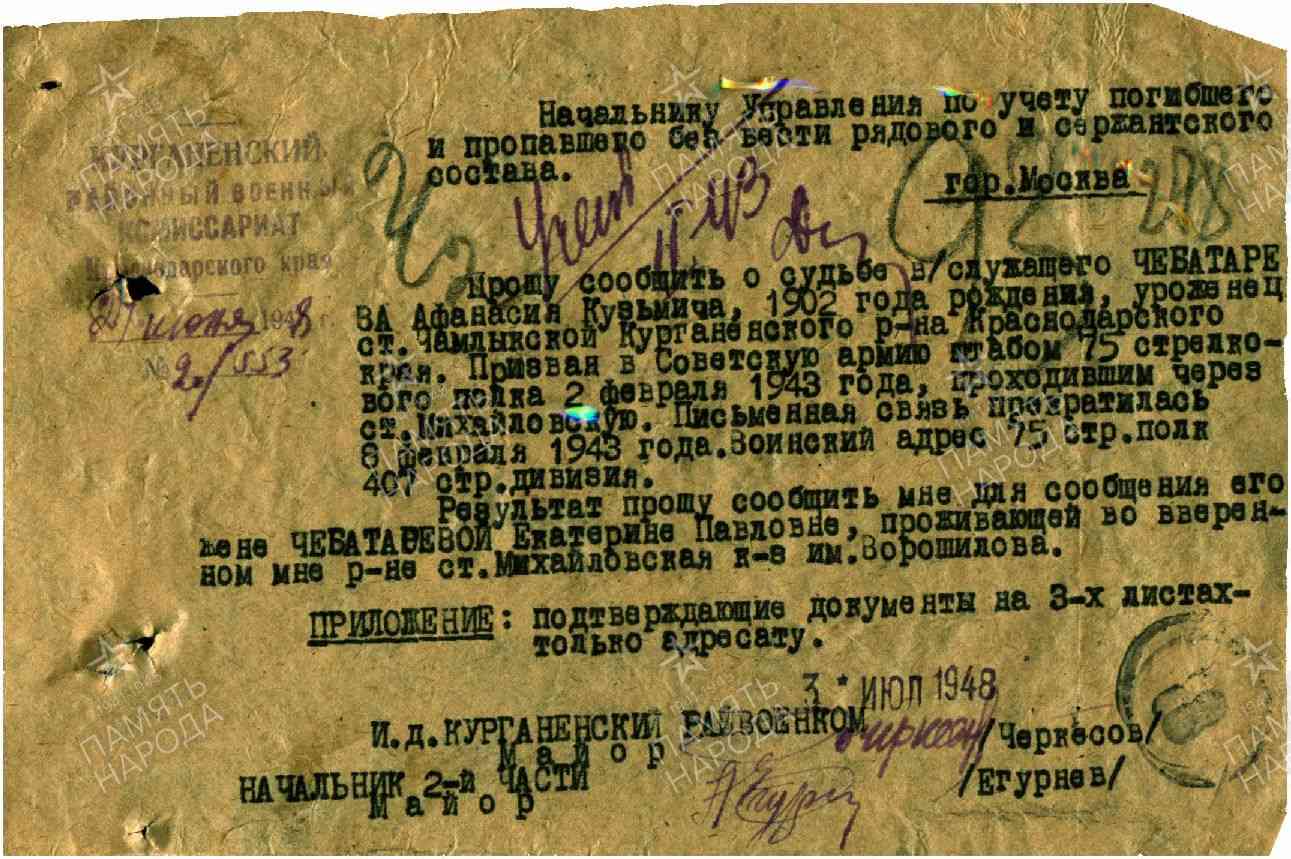 Начальнику Управления по учету погибшего
и пропавшего без вести рядового и сержантского
состава.
гор.Москва
КУРГАНЕНСКИЙ
РАЙОННЫЙ ВОЕННЫЙ
КОМИССАРИАТ
Краснодарского края
июня 1948 г.
№ 2/553
92 278
Прошу сообщить о судьбе в/служащего ЧЕБАТАРЕ
ВА Афанасия Кузьмича, 1902 года рождения, уроженец
ст.Чамлыкской Курганенского р-на Краснодарского
края. Призван в Советскую армию штабом 75 стрелко-
вого полка 2 февраля 1943 года, проходившим через
ст.Михайловскую. Письменная связь прекратилась
8 февраля 1943 года.Воинский адрес 75 стр.полк
407 стр.дивизия.
Результат прошу сообщить мне для сообщения его
жене ЧЕБАТАРЕВОЙ Екатерине Павловне, проживающей во вверен-
ном мне р-не ст.Михайловская к-з им.Ворошилова.
ПРИЛОЖЕНИЕ: подтверждающие документы на 3-х листах-
только адресату.
3 * ИЮЛ 1948
И.д.КУРГАНЕНСКИЙ РАЙВОЕНКОМ
Майор /Черкесов/
НАЧАЛЬНИК 2-й ЧАСТИ
Майор /Егурнев/
ПАМЯТЬ НАРОДА